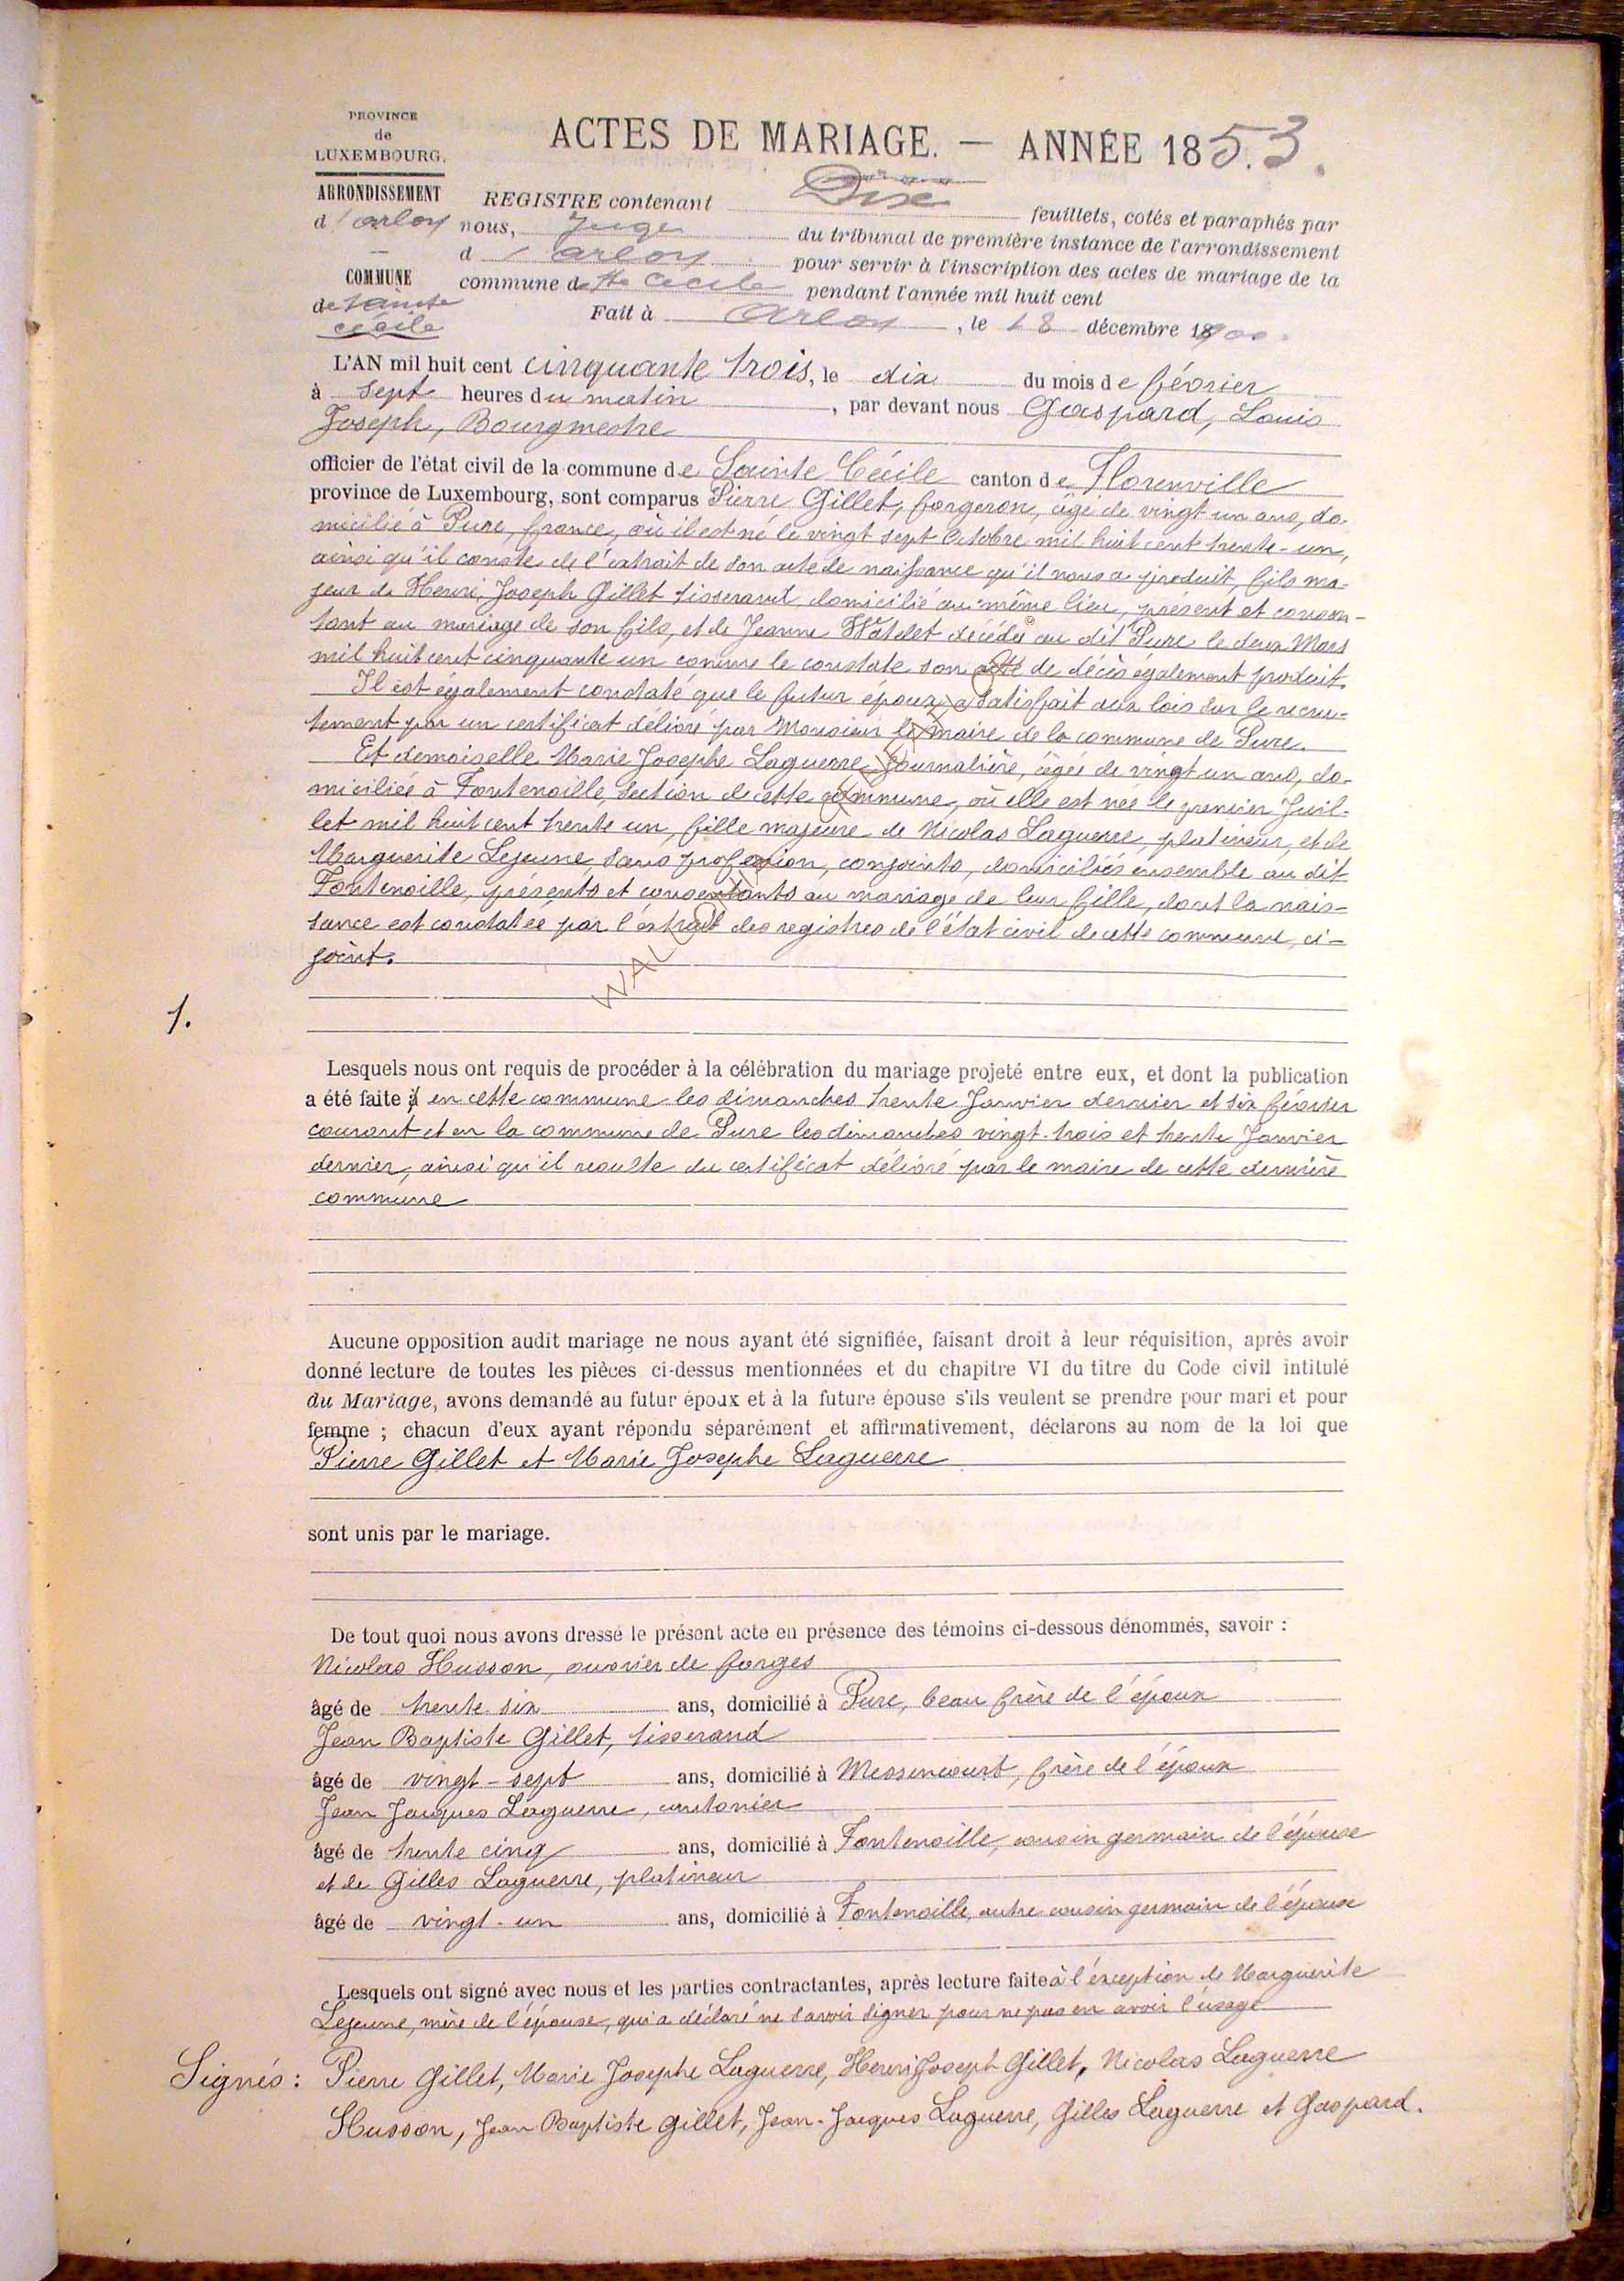 PROVINCE
de
LUXEMBOURG.
ARRONDISSEMENT
d'arlon
COMMUNE
de Sainte
Cécile
ACTES DE MARIAGE. — ANNÉE 1853.
REGISTRE contenant Dix feuillets, cotés et paraphés par
nous, Juge du tribunal de première instance de l'arrondissement
d'arlon pour servir à l'inscription des actes de mariage de la
commune de Ste Cecile pendant l'année mil huit cent
Fait à Arlon, le 18 décembre 1900.
L'AN mil huit cent cinquante trois, le dix du mois de février
à sept heures du matin, par devant nous Gaspard, Louis
Joseph, Bourgmestre
officier de l'état civil de la commune de Sainte Cécile canton de Florenville
province de Luxembourg, sont comparus Pierre Gillet, forgeron, âgé de vingt un ans, do-
micilié à Pure, france, où il est né le vingt sept Octobre mil huit cent trente-un,
ainsi qu'il conste de l'extrait de son acte de naissance qu'il nous a produit, fils ma-
jeur de Henri Joseph Gillet tisserand domicilié au même lieu, présent et consen-
tant au mariage de son fils, et de Jeanne Watelet décédée au dit Pure le deux Mars
mil huit cent cinquante un comme le constate son acte de décès également produit.
Il est également constaté que le futur époux a satisfait aux lois sur le recru-
tement par un certificat délivré par Monsieur le maire de la commune de Pure.
Et demoiselle Marie Josephe Laguerre Journalière, âgée de vingt un ans, do-
miciliée à Fontenoille, Section de cette commune, où elle est née le premier Juil-
let mil huit cent trente un, fille majeure de Nicolas Laguerre, platineur, et de
Marguerite Lejeune, sans profession, conjoints, domiciliés ensemble au dit
Fontenoille, présents et consentants au mariage de leur fille, dont la nais-
sance est constatée par l'extrait des registres de l'état civil de cette commune, ci-
joint.
1.
Lesquels nous ont requis de procéder à la célébration du mariage projeté entre eux, et dont la publication
a été faite en cette commune les dimanches trente Janvier dernier et six février
courant et en la commune de Pure les dimanches vingt-trois et trente Janvier
dernier, ainsi qu'il resulte du certificat délivré par le maire de cette dernière
commune
Aucune opposition audit mariage ne nous ayant été signifiée, faisant droit à leur réquisition, après avoir
donné lecture de toutes les pièces ci-dessus mentionnées et du chapitre VI du titre du Code civil intitulé
du Mariage, avons demandé au futur époux et à la future épouse s'ils veulent se prendre pour mari et pour
femme ; chacun d'eux ayant répondu séparément et affirmativement, déclarons au nom de la loi que
Pierre Gillet et Marie Josephe Laguerre
sont unis par le mariage.
De tout quoi nous avons dressé le présent acte en présence des témoins ci-dessous dénommés, savoir :
Nicolas Husson, ouvrier de forges
âgé de trente-six ans, domicilié à Pure, beau frère de l'époux
Jean Baptiste Gillet, tisserand
âgé de vingt-sept ans, domicilié à Messincourt, frère de l'époux
Jean Jacques Laguerre, cantonier
âgé de trente cinq ans, domicilié à Fontenoille, cousin germain de l'épouse
et de Gilles Laguerre, platineur
âgé de vingt-un ans, domicilié à Fontenoille, autre cousin germain de l'épouse
Lesquels ont signé avec nous et les parties contractantes, après lecture faite à l'exception de Marguerite
Lejeune, mère de l'épouse, qui a déclaré ne savoir signer pour ne pas en avoir l'usage
Signés : Pierre Gillet, Marie Josephe Laguerre, Henri Joseph Gillet, Nicolas Laguerre
Husson, Jean Baptiste Gillet, Jean-Jacques Laguerre, Gilles Laguerre et Gaspard.